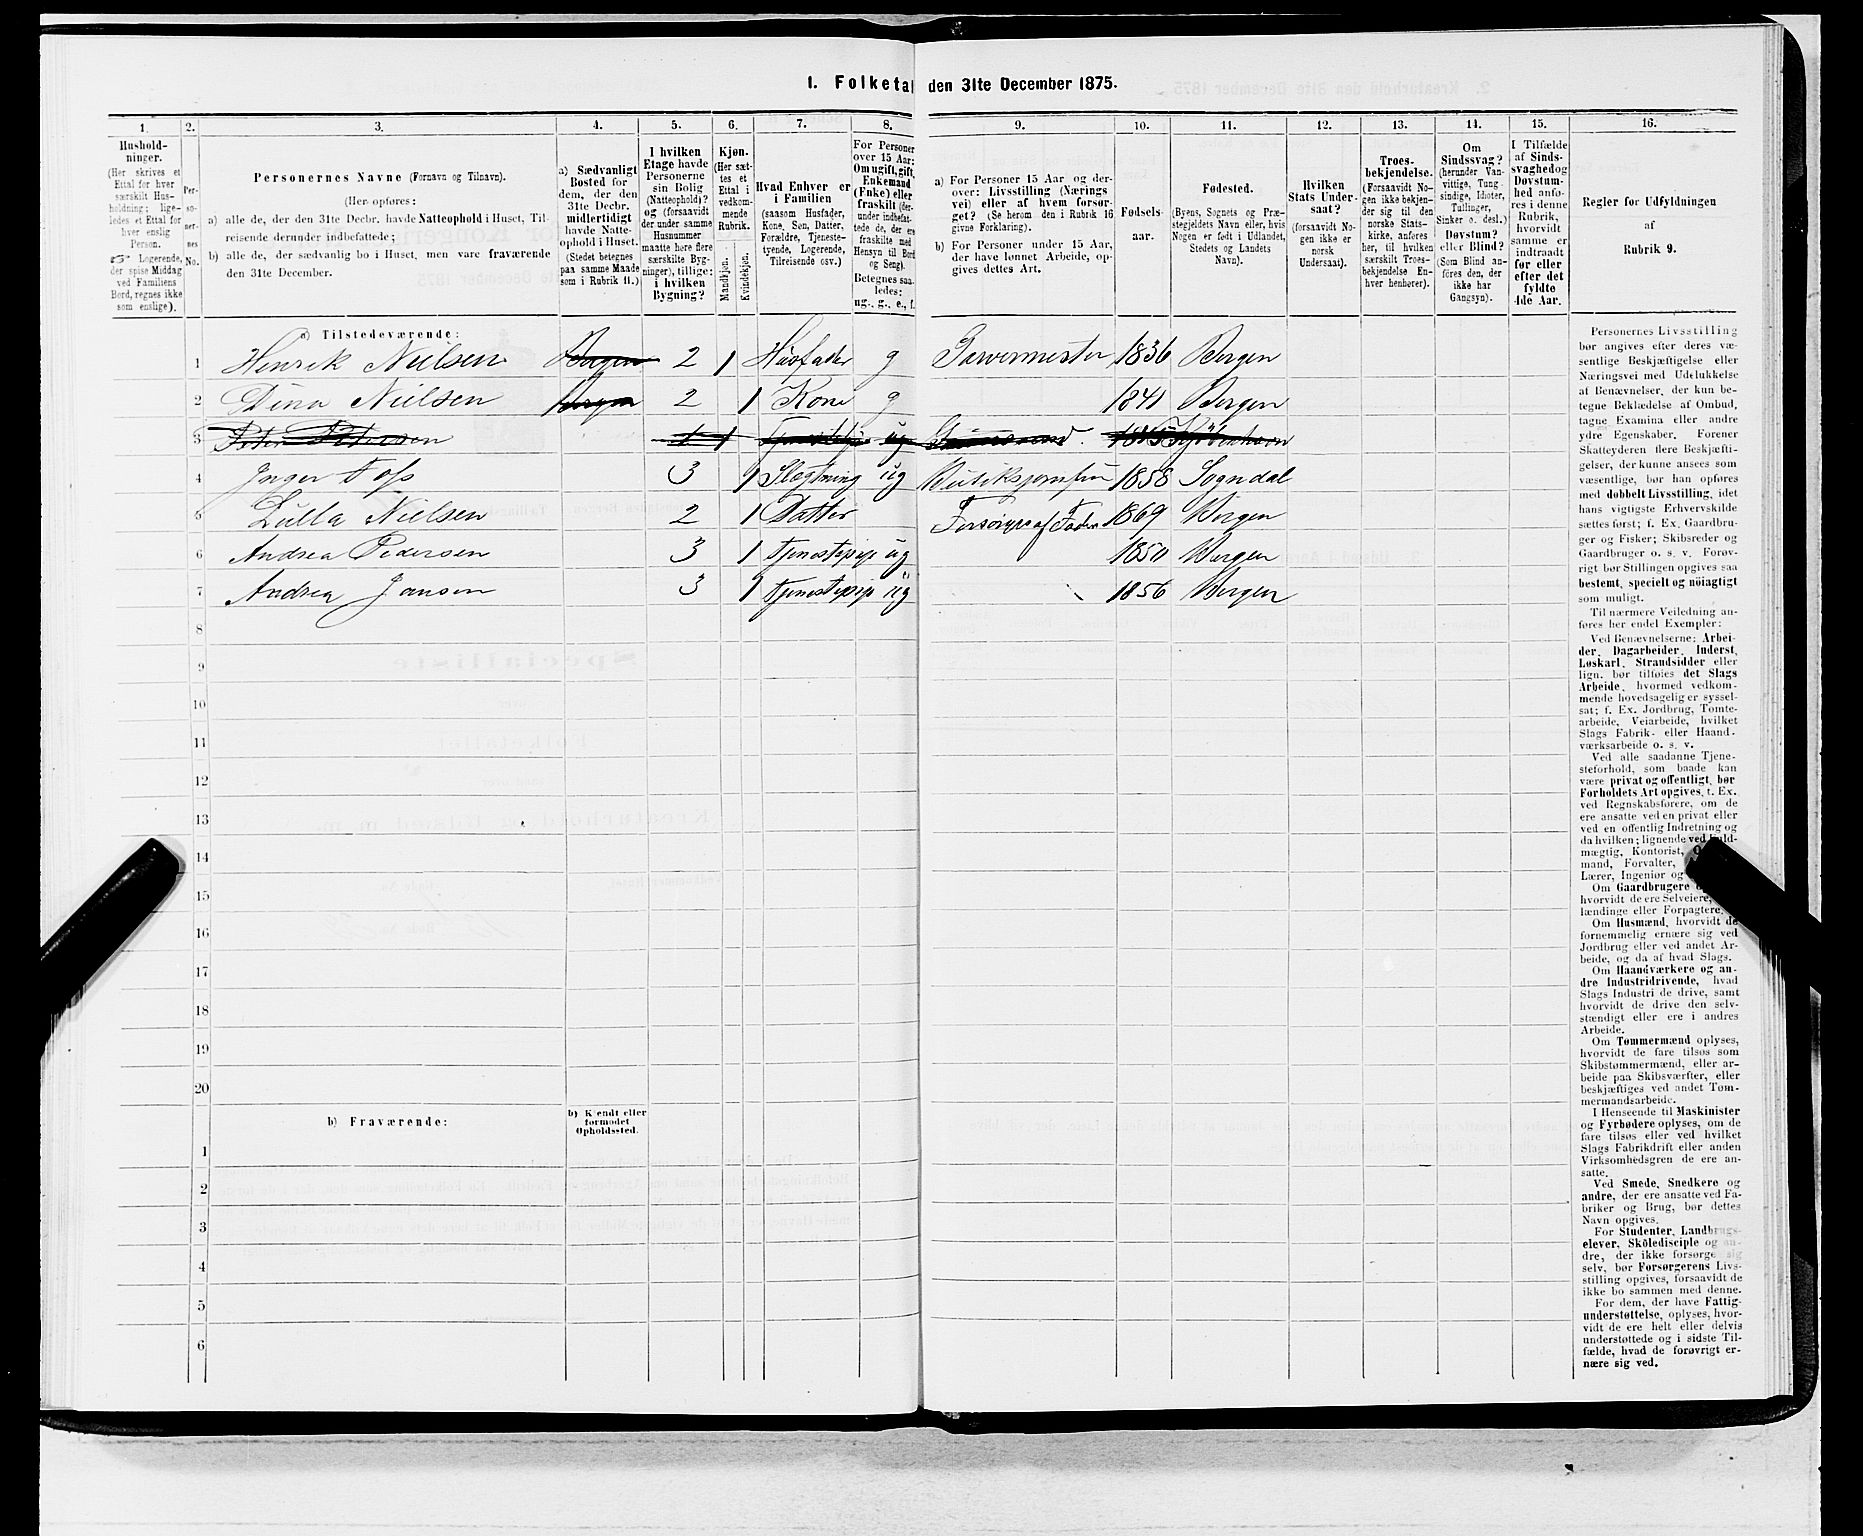 1. Folketal den 31te December 1875.
1. 2. 3. 4. 5. 6. 7. 8. 9. 10. 11. 12. 13. 14. 15. 16.
Hushold-
ninger.
(Her skrives et
Ettal for hver
særskilt Hus-
holdning; lige-
ledes et Ettal for
hver enslig
Person.
Logerende,
der spise Middag
ved Familiens
Bord, regnes ikke
som enslige).
Per-
so-
ner-
nes
No.
Personernes Navne (Fornavn og Tilnavn).
(Her opføres:
a) alle de, der den 31te Decbr. havde Natteophold i Huset, Til-
reisende derunder indbefattede;
b) alle de, der sædvanlig bo i Huset, men vare fraværende
den 31te December.
a) Sædvanligt
Bosted for
dem, der den
31te Decbr.
midlertidigt
havde Natte-
ophold i Huset.
(Stedet betegnes
paa samme Maade
som i Rubrik 11.)
I hvilken
Etage havde
Personerne
sin Bolig
(Natteophold)?
og (forsaavidt
der under samme
Husnummer
maatte høre flere
særskilte Byg-
ninger), tillige:
i hvilken
Bygning?
Kjøn.
(Her sæt-
tes et
Ettal i
vedkom-
mende
Rubrik.
Mandkjøn.
Kvindekjøn.
Hvad Enhver er
i Familien
(saasom Husfader,
Kone, Søn, Datter,
Forældre, Tjeneste-
tyende, Logerende,
Tilreisende osv.)
For Personer
over 15 Aar:
Om ugift, gift,
Enkemand
(Enke) eller
fraskilt (der-
under indbefat-
tede de, der ere
fraskilte med
Hensyn til Bord
og Seng).
Betegnes saa-
ledes:
ug., g., e., f.
a) For Personer 15 Aar og der-
over: Livsstilling (Nærings
vei) eller af hvem forsør-
get? (Se herom den i Rubrik 16
givne Forklaring).
b) For Personer under 15 Aar,
der have lønnet Arbeide, op-
gives dettes Art.
Fødsels-
aar.
Fødested.
(Byens, Sognets og Præ-
stegjeldets Navn eller, hvis
Nogen er født i Udlandet,
Stedets og Landets
Navn).
Hvilken
Stats Under-
saat?
(forsaavidt No-
gen ikke er
norsk
Undersaat).
Troes-
bekjendelse.
(Forsaavidt No-
gen ikke bekjen-
der sig til den
norske Stats-
kirke, anføres
her, til hvilken
særskilt Troes-
bekjendelse En-
hver henhører).
Om
Sindssvag?
(herunder Van-
vittige, Tung-
sindige, Idioter,
Tullinger,
Sinker o. desl.)
Døvstum?
eller Blind?
(Som Blind an-
føres den, der
ikke har
Gangsyn).
I Tilfælde
af Sinds-
svaghed og
Døvstum-
hed anfø-
res i denne
Rubrik,
hvorvidt
samme er
indtraadt
før eller
efter det
fyldte
4de Aar.
Regler for Udfyldningen
af
Rubrik 9.
a) Tilstedeværende:
1 Henrik Nielsen Bergen 2 1 Husfader g Garvermester 1836 Bergen
2 Dina Nielsen Bergen 2 1 Kone g 1841 Bergen
3 Peter Petersen 1 1 ug
4 Inger Foss 3 1 Slægtning ug Butiksjomfru 1858 Sogndal
5 Lulla Nielsen 2 1 Datter Forsørges af Faderen 1869 Bergen
6 Andrea Pedersen 3 1 Tjenestepige ug 1850 Bergen
7 Andrea Jansen 3 1 Tjenestepige ug 1856 Bergen
8
9
10
11
12
13
14
15
16
17
18
19
20
b) Fraværende:
b) Kjendt eller
formodet
Opholdssted.
1
2
3
4
5
6
Personernes Livsstilling
bør angives efter deres væ-
sentlige Beskjæftigelse eller
Næringsvei med Udelukkelse
af Benævnelser, der kun be-
tegne Beklædelse af Ombud,
tagne Examina eller andre
ydre Egenskaber. Forener
Skatteyderen flere Beskjæfti-
gelser, der kunne ansees som
væsentlige, bør han opføres
med dobbelt Livsstilling, idet
hans vigtigste Erhvervskilde
sættes først; f. Ex. Gaardbru-
ger og Fisker; Skibsreder og
Gaardbruger o. s. v. Forøv-
rigt bør Stillingen opgives saa
bestemt, specielt og nöiagtigt
som muligt.
Til nærmere Veiledning an-
føres her endel Exempler:
Ved Benævnelserne: Arbei-
der, Dagarbeider, Inderst,
Løskarl, Strandsidder eller
lign. bør tilføies det Slags
Arbeide, hvormed vedkom-
mende hovedsagelig er syssel-
sat; f. Ex. Jordbrug, Tomte-
arbeide, Veiarbeide, hvilket
Slags Fabrik- eller Haand-
værksarbeide o. s. v.
Ved alle saadanne Tjene-
steforhold, som baade kan
være privat og offentligt, bør
Forholdets Art opgives, t. Ex.
ved Regnskabsførere, om de
ere ansatte ved en privat eller
ved en offentlig Indretning og
da hvilken; lignende ved Fuld-
mægtig, Kontorist,
mand, Forvalter,
Lærer, Ingeniør og
Om Gaardbrugere
hvorvidt de ere Selveiere,
lændinge eller Forpagtere.
Om Husmænd, hvorvidt de
fornemmelig ernære sig ved
Jordbrug eller ved andet Ar-
beide, og da af hvad Slags.
Om Haandværkere og an-
dre Industridrivende, hvad
Slags Industri de drive, samt
hvorvidt de drive den selv-
stændigt eller ere i andres
Arbeide.
Om Tømmermænd oplyses,
hvorvidt de fare tilsøs som
Skibstømmermænd, eller ar-
beide paa Skibsværfter, eller
beskjæftiges ved andet Tøm-
mermandsarbeide.
I Henseende til Maskinister
og Fyrbødere oplyses, om de
fare tilsøs eller ved hvilket
Slags Fabrikdrift eller anden
Virksomhedsgren de ere an-
satte.
Ved Smede, Snedkere og
andre, der ere ansatte ved Fa-
briker og Brug, bør dettes
Navn opgives.
For Studenter, Landbrugs-
elever, Skoledisciple og an-
dre, der ikke forsørge sig
selv, bør Forsørgerens Livs-
stilling opgives, forsaavidt de
ikke bo sammen med denne.
For dem, der have Fattig-
understøttelse, oplyses, hvor-
vidt de ere helt eller delvis
understøttede og i sidste Til-
fælde, hvad de forøvrigt er-
nære sig ved.